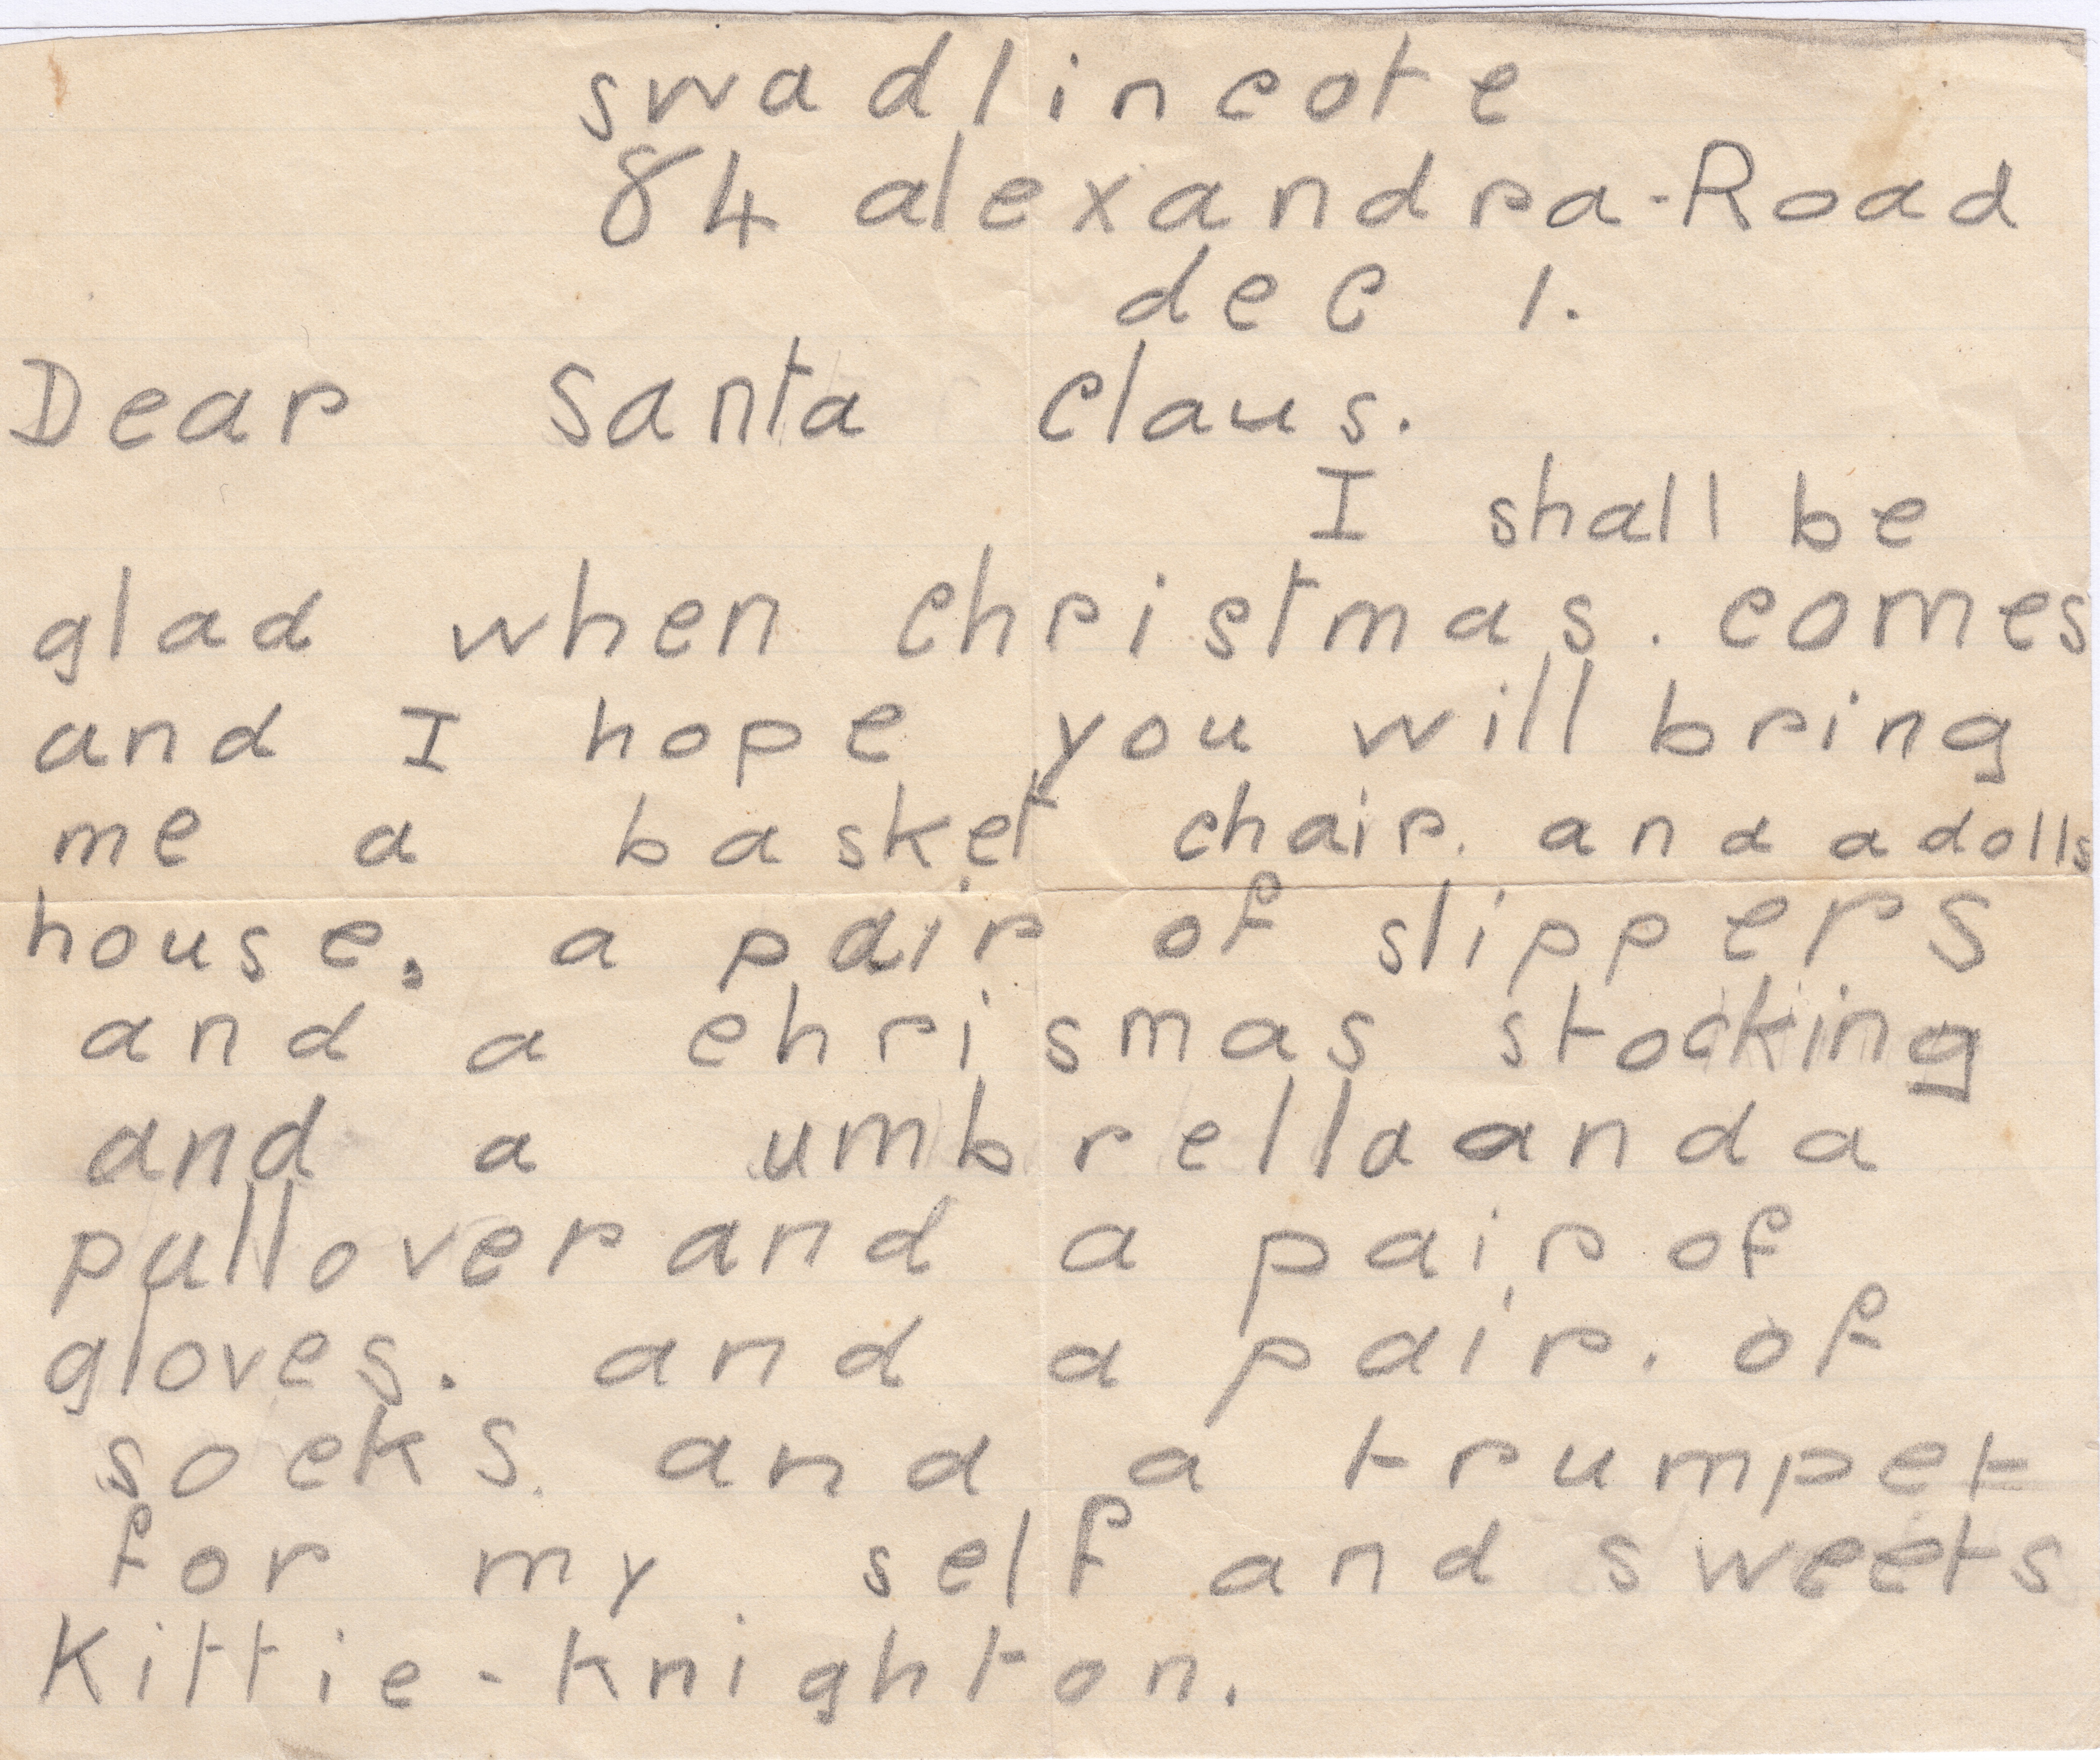 swadlincote
84 alexandra-Road
dec 1.
Dear Santa Claus.
I shall be
glad when christmas. comes
and I hope you will bring
me a basket chair. and a dolls
house. a pair of slippers
and a chrismas stocking
and a umbrella and a
pullover and a pair of
gloves. and a pair. of
socks. and a trumpet
for my self and sweets
Kittie-Knighton.